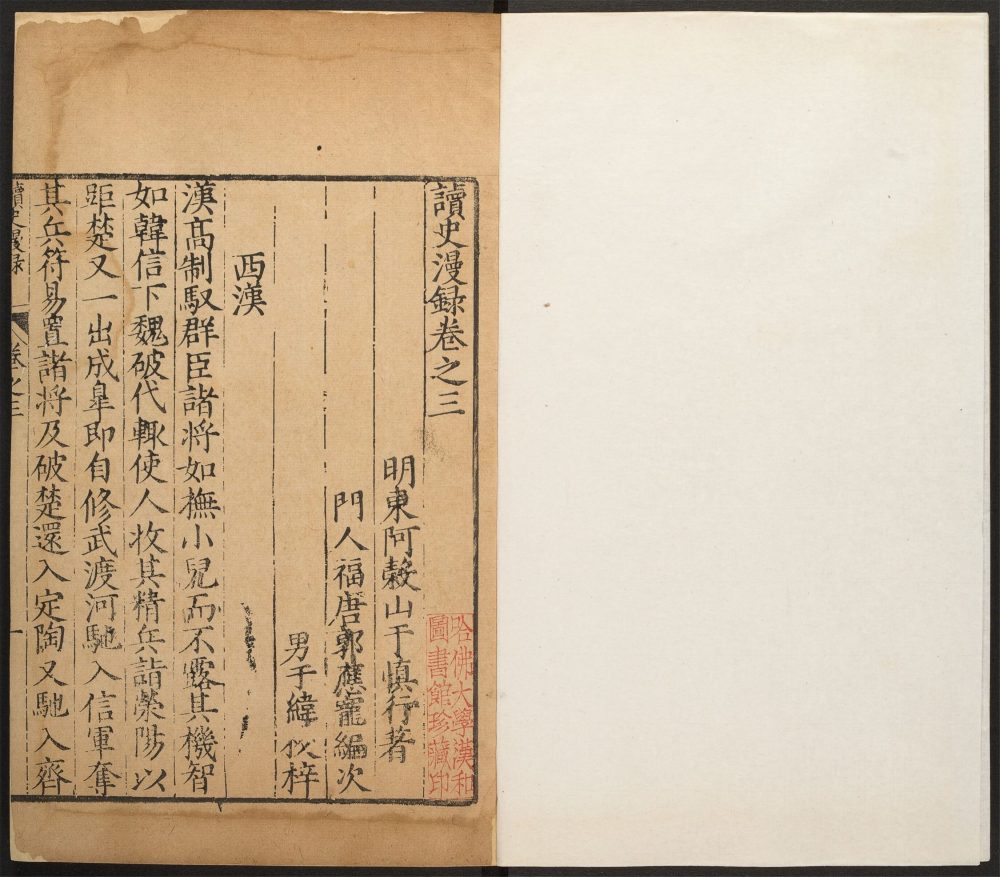 讀史漫録卷之三
明東阿穀山于慎行著
門人福唐郭應寵編次
男于緯校梓
西漢
漢高制馭群臣諸将如撫小兒而不露其機智
如韓信下魏破代輙使人收其精兵詣滎陽以
距楚又一出成臯即自修武渡河馳入信軍奪
其兵符易置諸将及破楚還入定陶又馳入齊
讀史漫録
卷之三
一
哈佛大學漢和
圖書館珍藏印